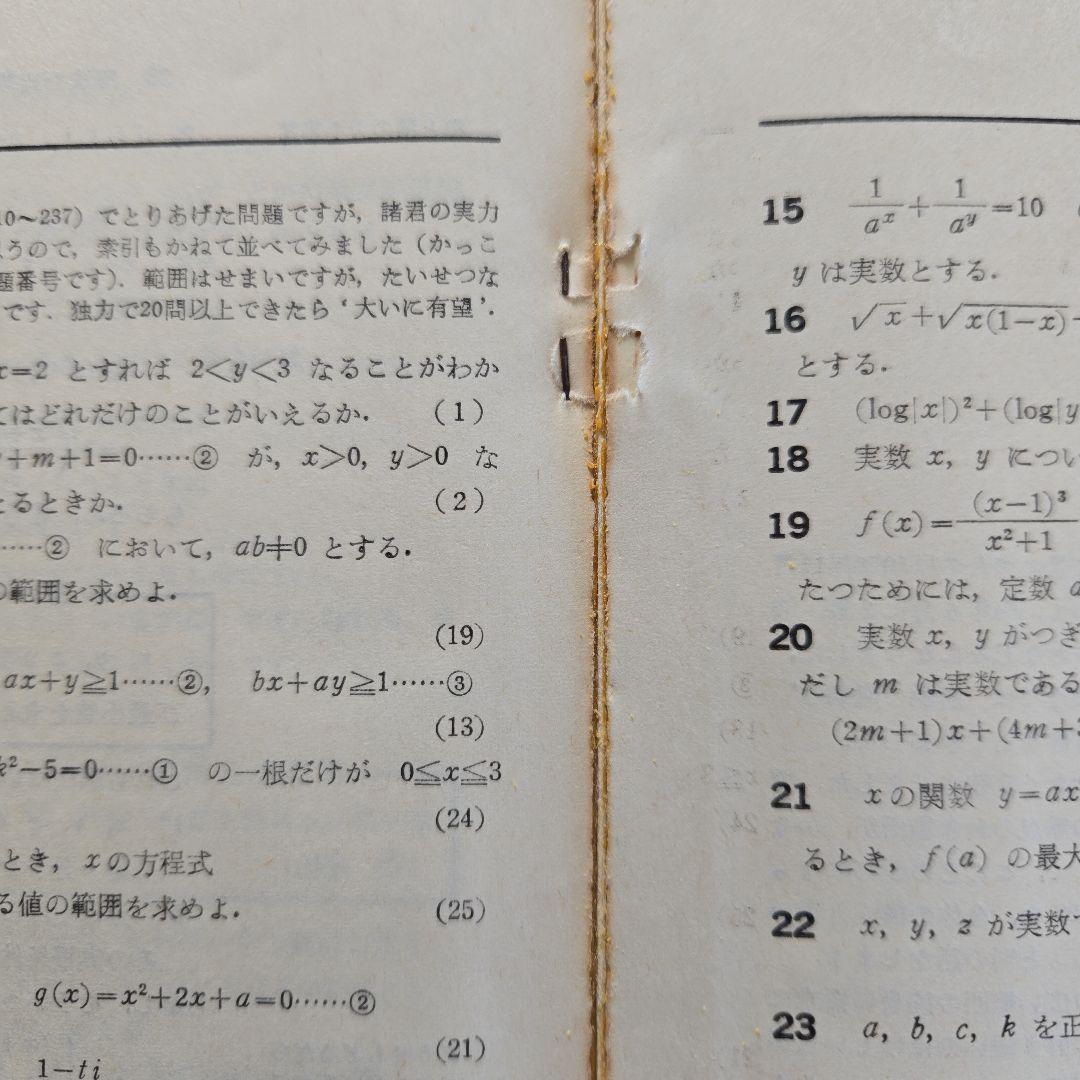 10～237）でとりあげた問題ですが，諸君の実力
うので，索引もかねて並べてみました（かっこ
題番号です）．範囲はせまいですが，たいせつな
です．独力で20問以上できたら‘大いに有望’．
x=2 とすれば 2<y<3 なることがわか
てはどれだけのことがいえるか． (1)
+m+1=0……② が，x>0, y>0 な
たるときか． (2)
……② において，ab≠0 とする．
の範囲を求めよ．
(19)
ax+y≧1……②， bx+ay≧1……③
(13)
k²−5=0……① の一根だけが 0≦x≦3
(24)
とき，xの方程式
る値の範囲を求めよ． (25)
g(x)=x²+2x+a=0……②
(21)
1−ti
15 1/a^x + 1/a^y =10
y は実数とする．
16 √x+√x(1−x)
とする．
17 (log|x|)²+(log|y
18 実数 x, y につい
19 f(x)=(x−1)³/x²+1
たつためには，定数 a
20 実数 x, y がつぎ
だし m は実数である
(2m+1)x+(4m+3
21 xの関数 y=ax
るとき，f(a) の最大
22 x, y, z が実数で
23 a, b, c, k を正